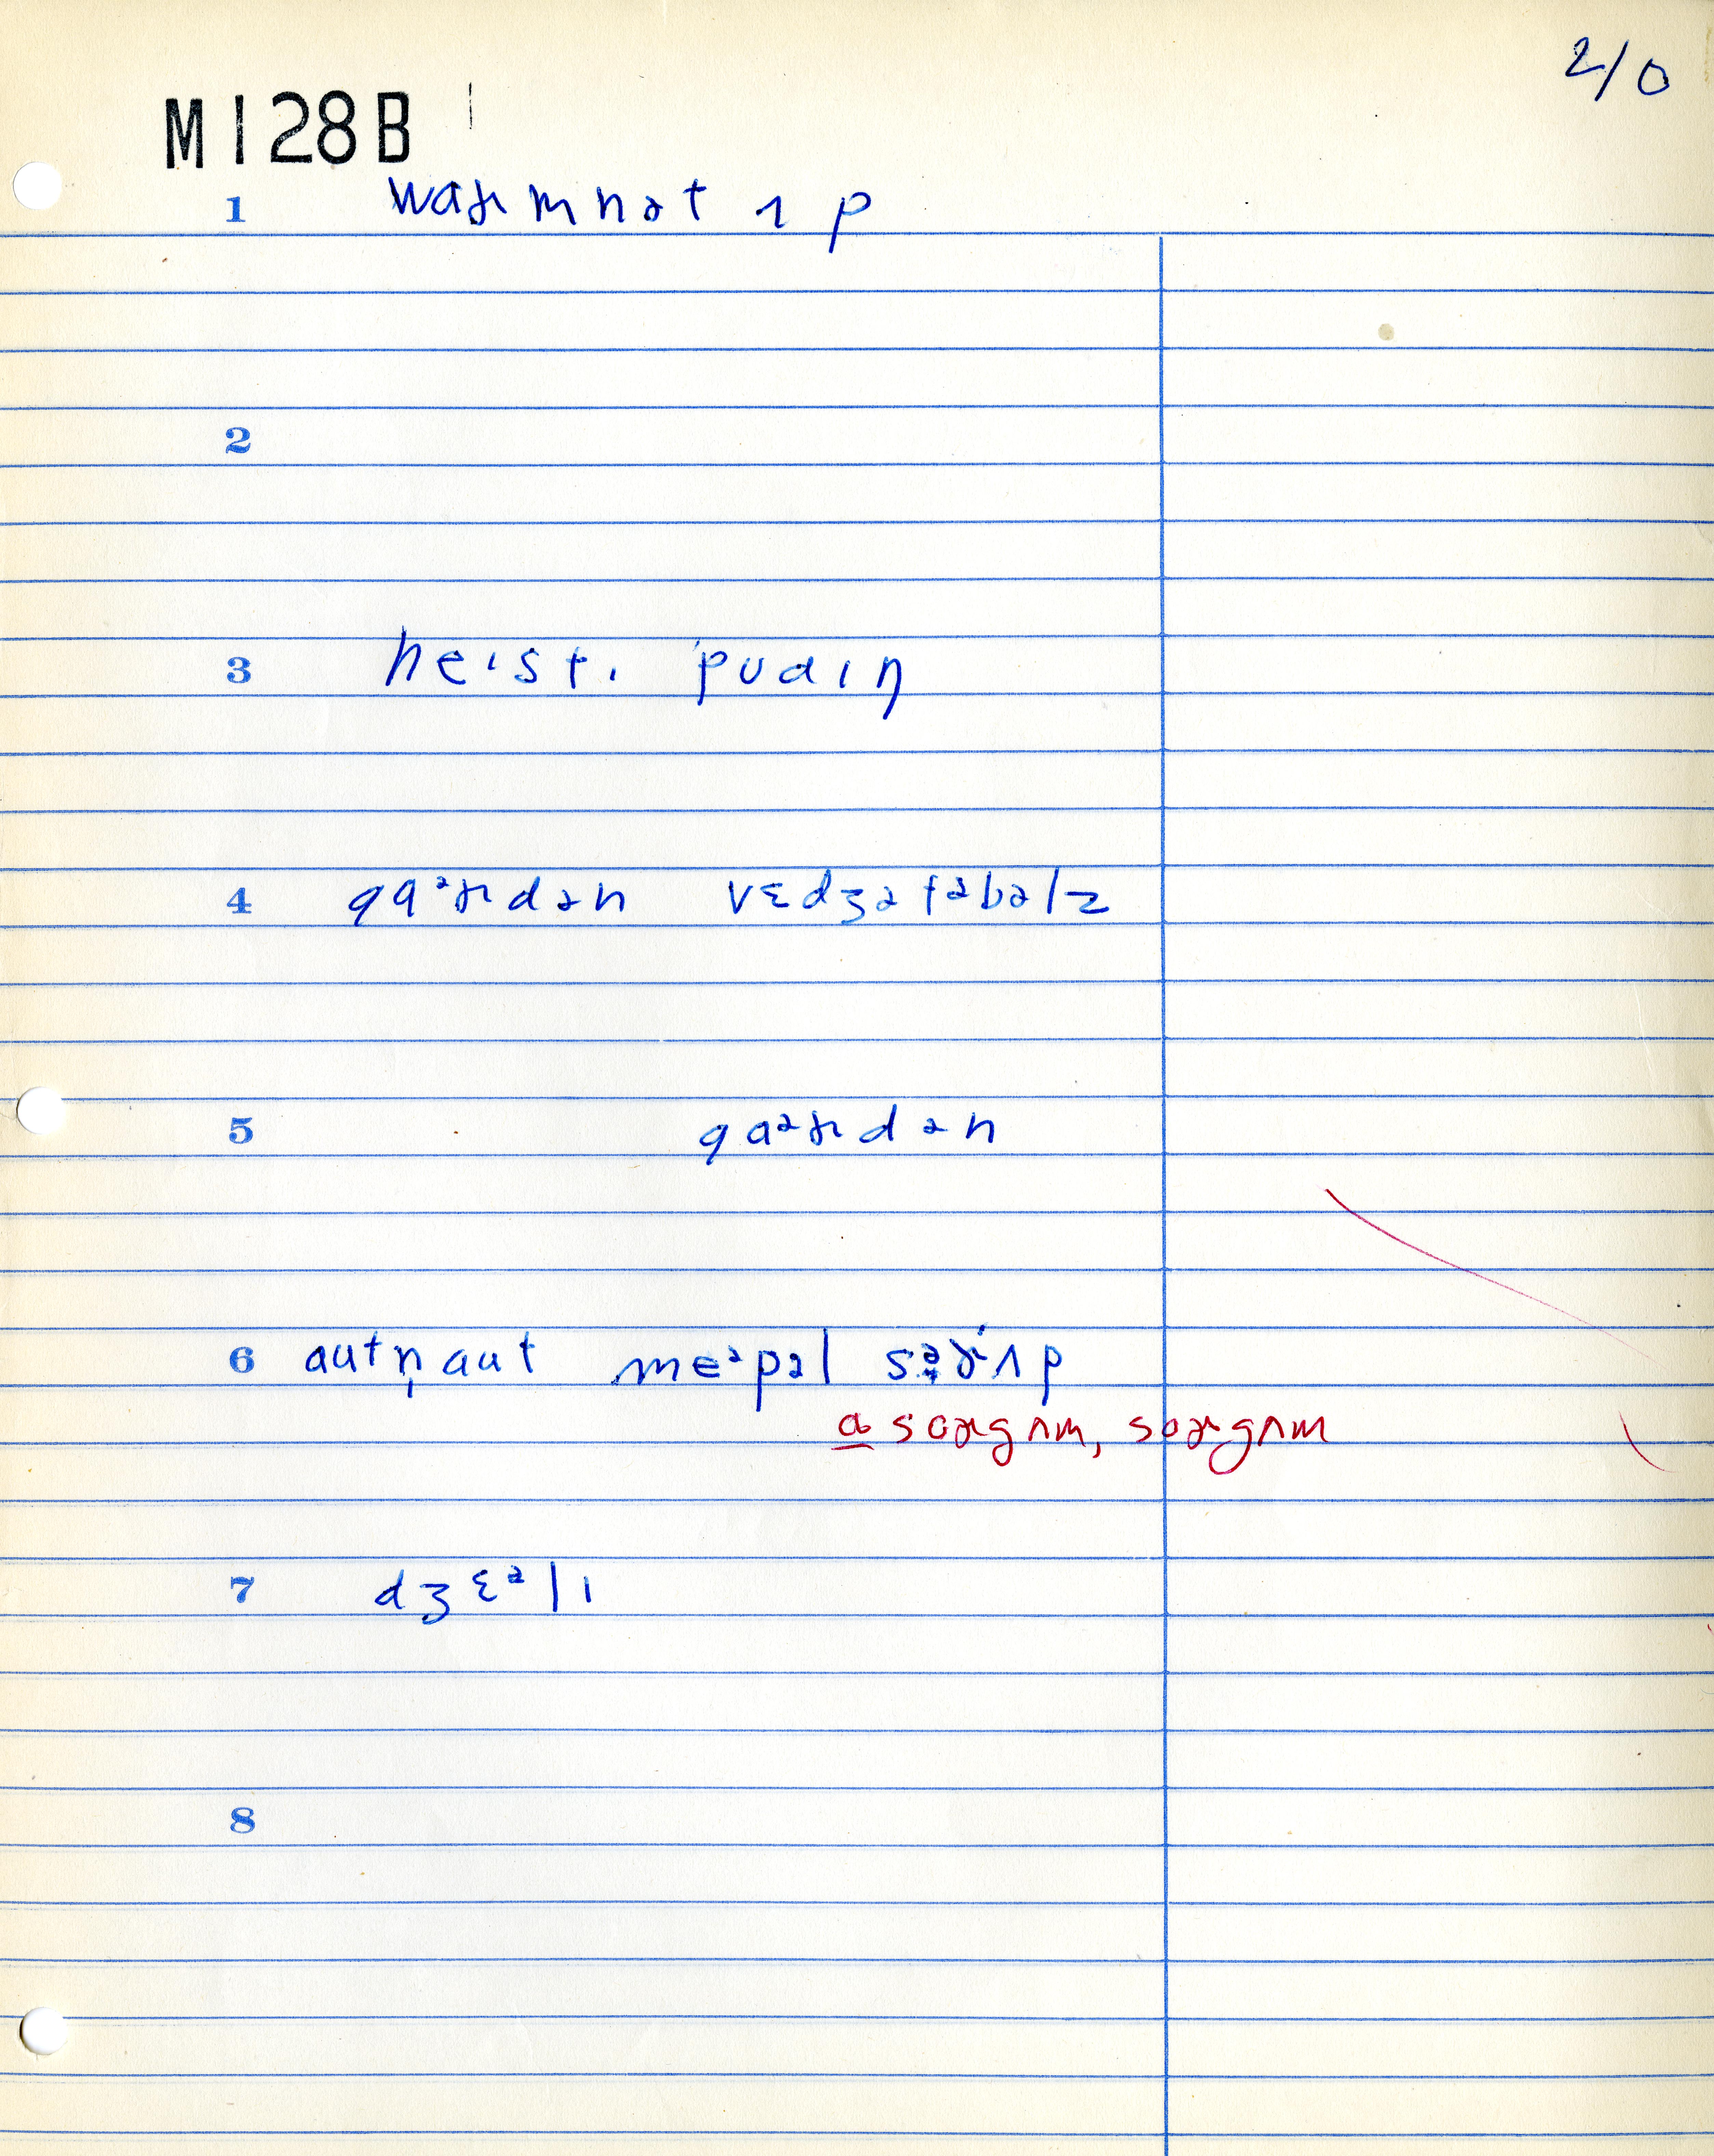 210
M128B
1 waɚm nət ʌp
2
3 heɪstɪ pudɪŋ
4 gaᵊɚdən vɛdʒətəbəlz
5 gaᵊɚdən
6 autn̩aut meᵊpəl səɚʌp
a soɚgʌm, soɚgʌm
7 dʒɛᵊlɪ
8